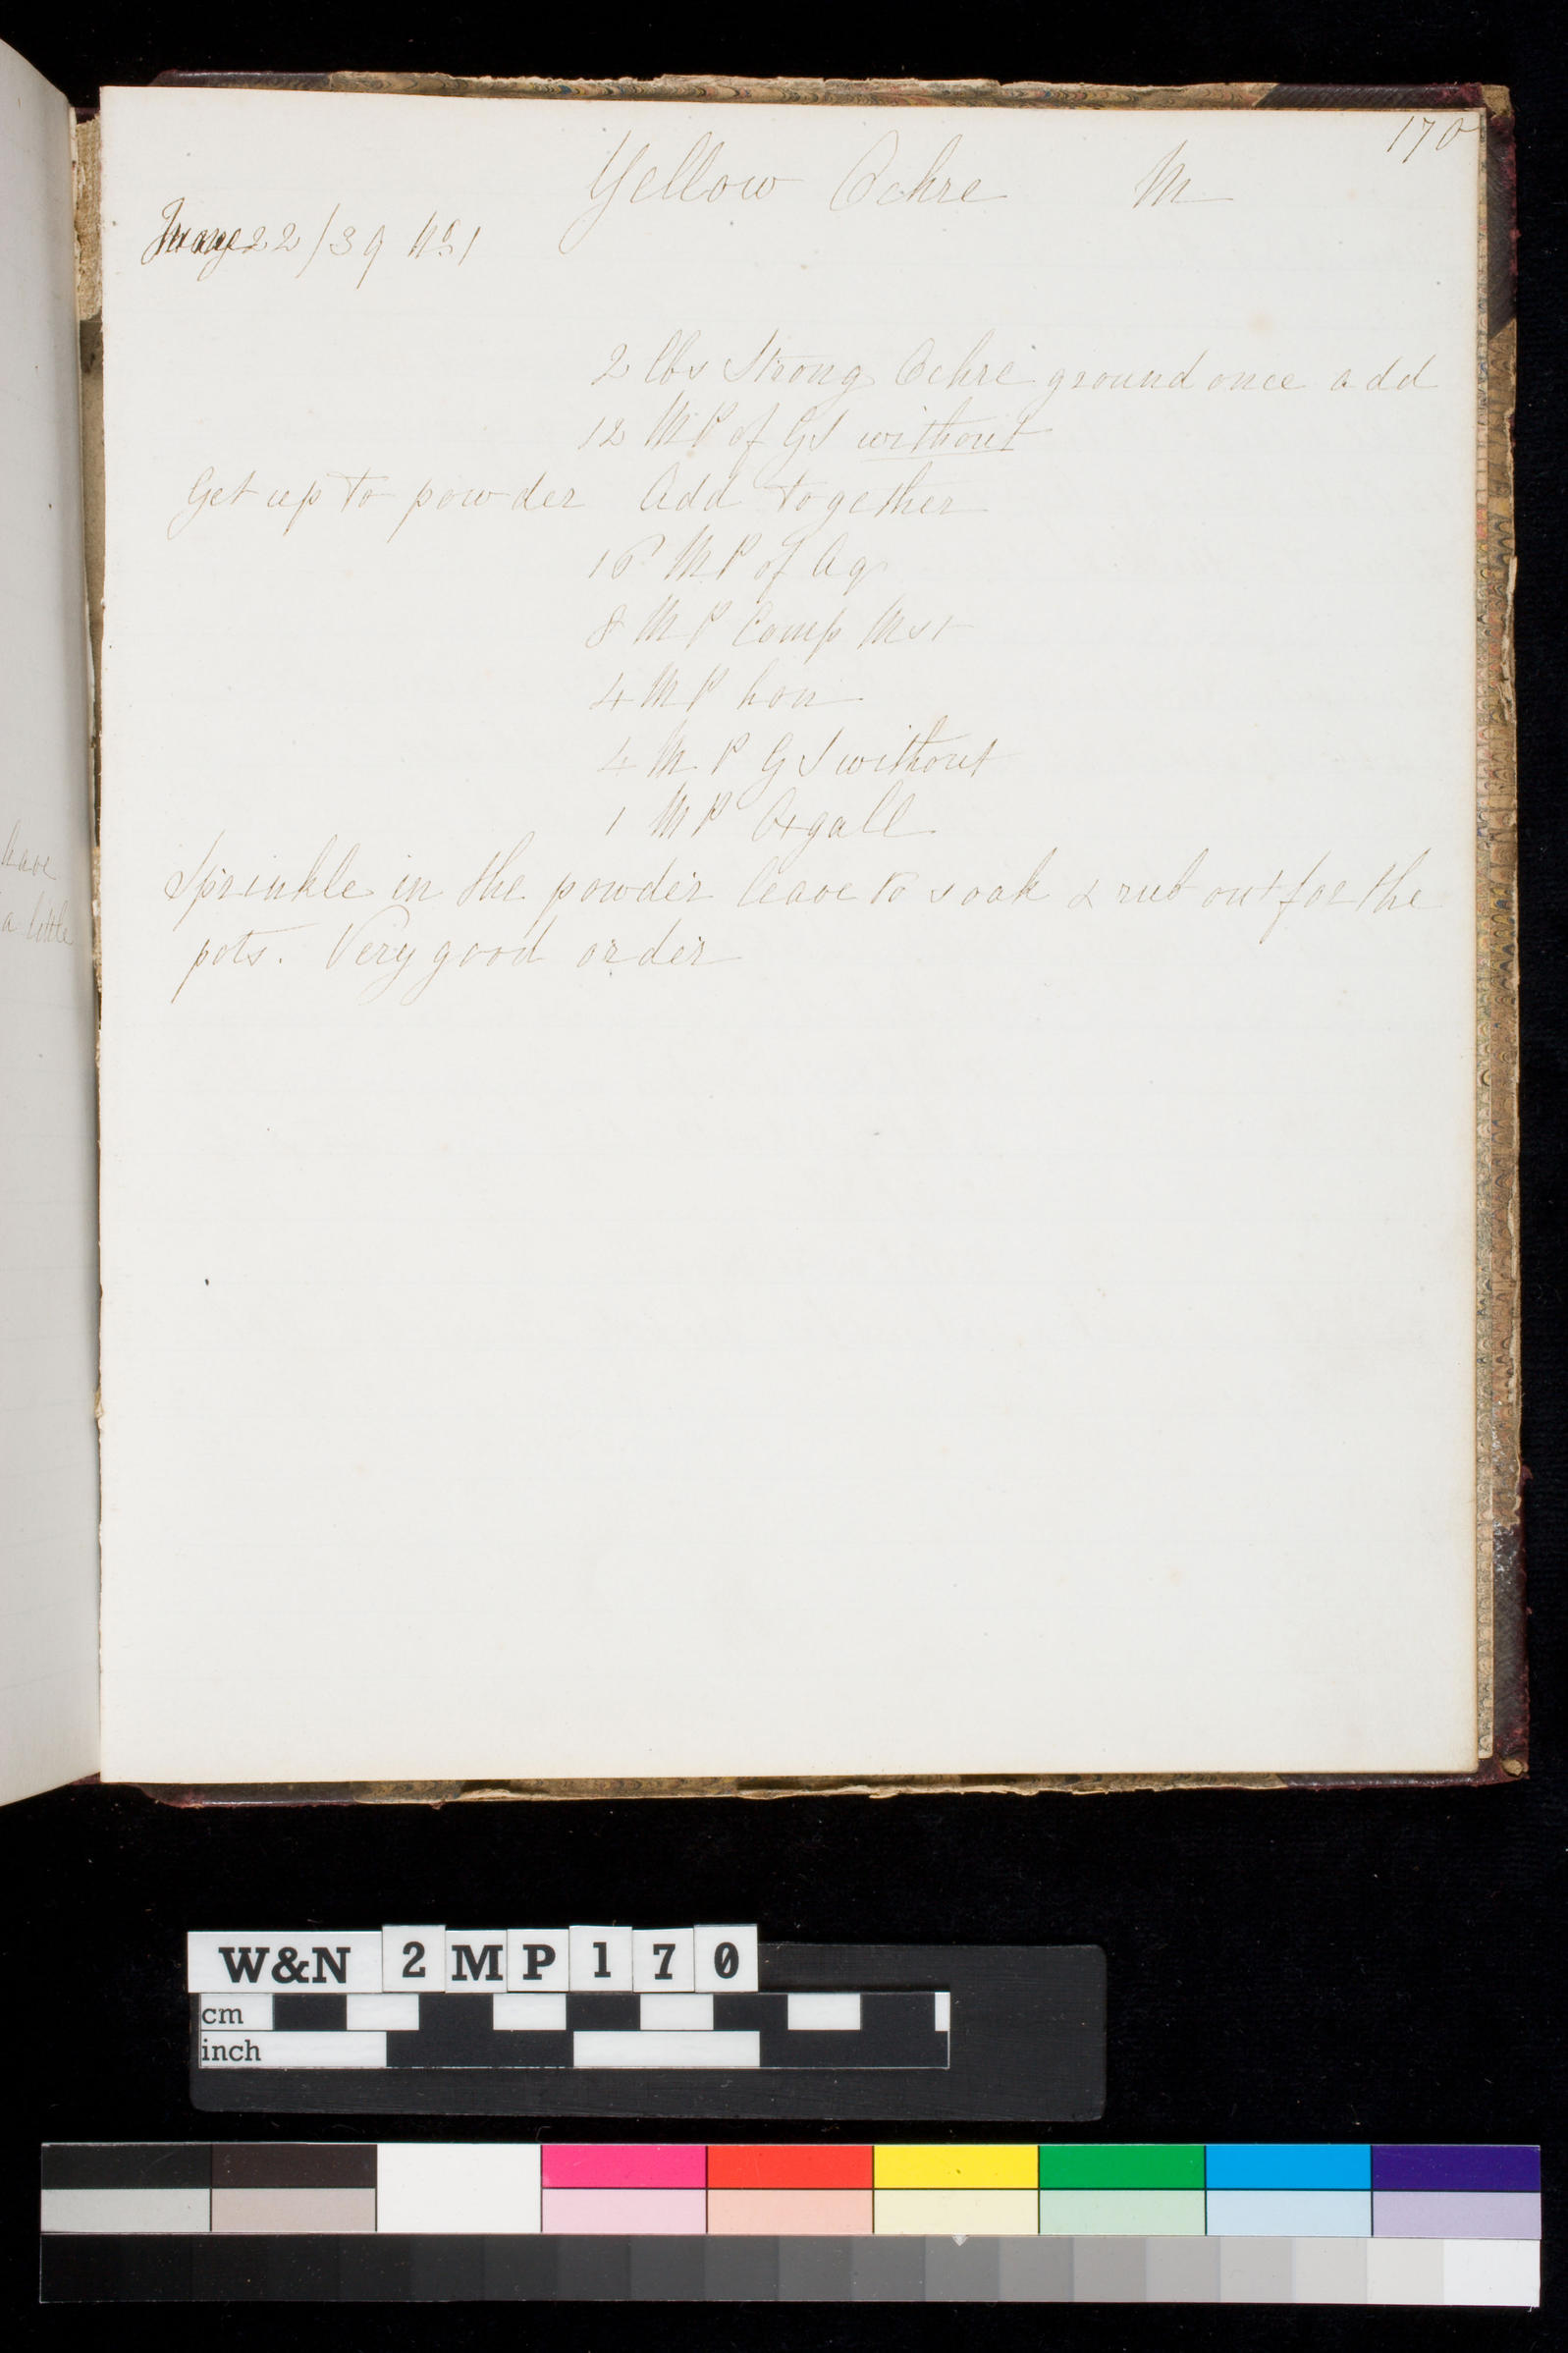 170
Yellow Ochre M
June 22/39 No 1
2 lbs Strong Ochre ground once add
12 MP of GS without
Get up to powder Add together
16 MP of Aq
8 MP Comp Mst
4 MP hon
4 MP GS without
1 MP Oxgall
Sprinkle in the powder leave to soak & rub out for the
pots. Very good order
have
a little
W&N 2MP170
cm
inch